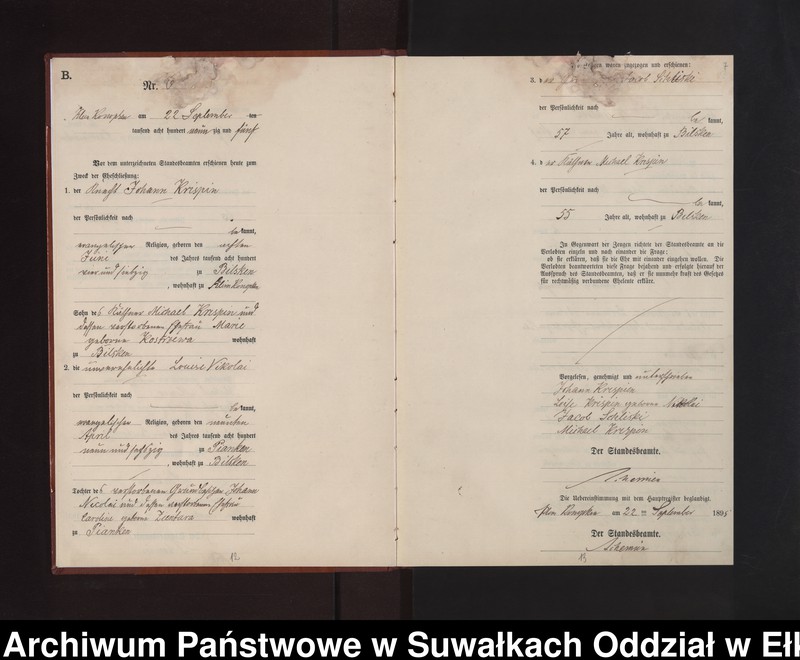 B.
Nr.
Klein Konopken am 22 September ten
tausend acht hundert neun zig und fünf
Vor dem unterzeichneten Standesbeamten erschienen heute zum
Zweck der Eheschließung:
1. der Knecht Johann Krispin
der Persönlichkeit nach
be kannt,
evangelischer Religion, geboren den achten
Juni des Jahres tausend acht hundert
vier und siebzig zu Bilsken
, wohnhaft zu Klein Konopken
Sohn des Käthner Michael Krispin und
dessen verstorbenen Ehefrau Marie
geborne Kostrzewa wohnhaft
zu Bilsken
2. die unverehelichte Louise Nikolai
der Persönlichkeit nach
be kannt,
evangelischen Religion, geboren den neunten
April des Jahres tausend acht hundert
neun und sechszig zu Pianken
, wohnhaft zu Bilsken
Tochter des verstorbenen Johann
Nicolai und dessen verstorbenen Ehefrau
Caroline geborne Zantara wohnhaft
zu Pianken
12
Zeugen waren zugezogen und erschienen:
3. d Jacob Schliski
der Persönlichkeit nach
be kannt,
57 Jahre alt, wohnhaft zu Bilsken
4. d er Käthner Michael Krispin
der Persönlichkeit nach
be kannt,
55 Jahre alt, wohnhaft zu Bilsken
In Gegenwart der Zeugen richtete der Standesbeamte an die
Verlobten einzeln und nach einander die Frage:
ob sie erklären, daß sie die Ehe mit einander eingehen wollen. Die
Verlobten beantworteten diese Frage bejahend und erfolgte hierauf der
Ausspruch des Standesbeamten, daß er sie nunmehr kraft des Gesetzes
für rechtmäßig verbundene Eheleute erkläre.
Vorgelesen, genehmigt und unterschrieben
Johann Krispien
Loise Krispin geborne Nikolai
Jacob Schliski
Michael Krispin
Der Standesbeamte.
Die Uebereinstimmung mit dem Hauptregister beglaubigt.
Klein Konopken am 22 ten September 1895
Der Standesbeamte.
13
Archiwum Państwowe w Suwałkach Oddział w Ełk